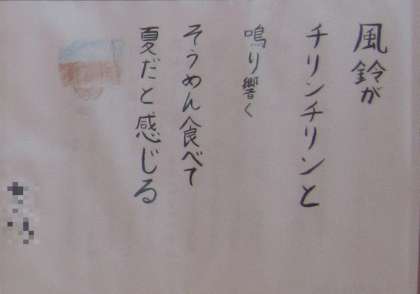 風鈴が
チリンチリンと
鳴り響く
そうめん食べて
夏だと感じる